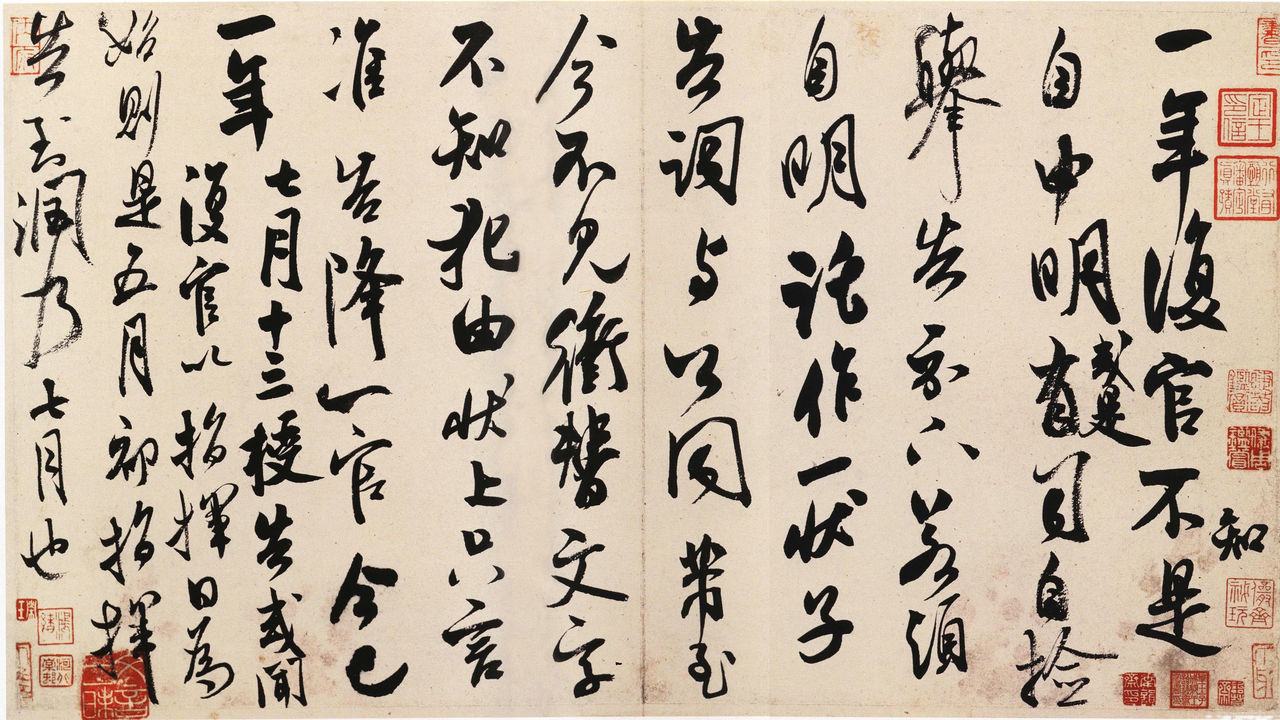 一年復官不是
知
自申明
或是
有司自檢
舉告示下若須
自明託作一狀子
告詞与公同帶到
今不見衝替文字
不知犯由狀上只言
准告降一官今已
一年
七月十三授告或聞
復官以指揮日為
始則是五月初指揮
告到潤乃七月也